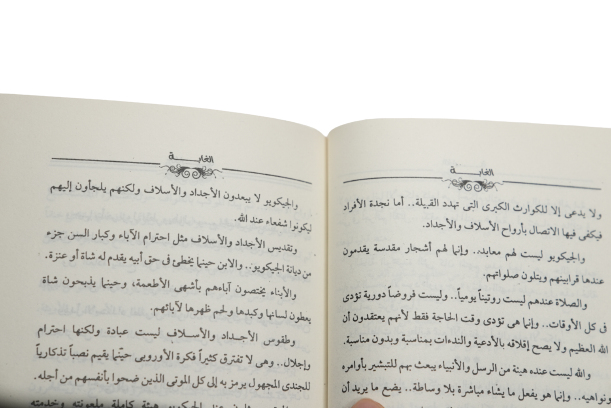 الغابـــة
ولا يدعى إلا للكوارث الكبرى التى تهدد القبيلة.. أما نجدة الأفراد
فيكفى فيها الاتصال بأرواح الأسلاف والأجداد.
والجيكويو ليست لهم معابد.. وإنما لهم أشجار مقدسة يقدمون
عندها قرابينهم ويتلون صلواتهم.
والصلاة عندهم ليست روتيناً يومياً.. وليست فروضاً دورية تؤدى
فى كل الأوقات.. وإنما هى تؤدى وقت الحاجة فقط لأنهم يعتقدون أن
الله العظيم ولا يصح إقلاقه بالأدعية والندءات بمناسبة وبدون مناسبة.
والله ليست عنده هيئة من الرسل والأنبياء يبعث بهم للتبشير بأوامره
ونواهيه.. وإنما هو يفعل ما يشاء مباشرة بلا وساطة.. يضع ما يريد أن
الغابـــة
والجيكويو لا يبعدون الأجداد والأسلاف ولكنهم يلجأون إليهم
ليكونوا شفعاء عند الله.
وتقديس الأجداد والأسلاف مثل احترام الآباء وكبار السن جزء
من ديانة الجيكويو.. والابن حينما يخطئ فى حق أبيه يقدم له شاة أو عنزة.
والأبناء يختصون آباءهم بأشهى الأطعمة، وحينما يذبحون شاة
يعطون لسانها وكبدها ولحم ظهرها لآبائهم.
وطقوس الأجـداد والأسـلاف ليست عبادة ولكنها احترام
وإجلال.. وهى لا تفترق كثيراً فكرة الأوروبى حينما يقيم نصباً تذكارياً
للجندى المجهول يرمز به إلى كل الموتى الذين ضحوا بأنفسهم من أجله.
الجيكويو هيئة كاملة ملعونته وخدمته